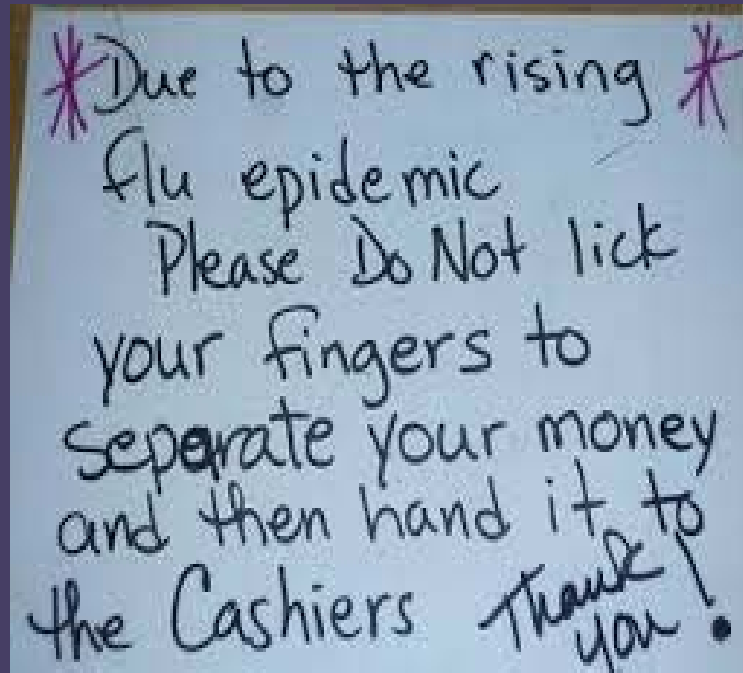 *Due to the rising *
flu epidemic
Please Do Not lick
your fingers to
separate your money
and then hand it to
the Cashiers Thank
you!